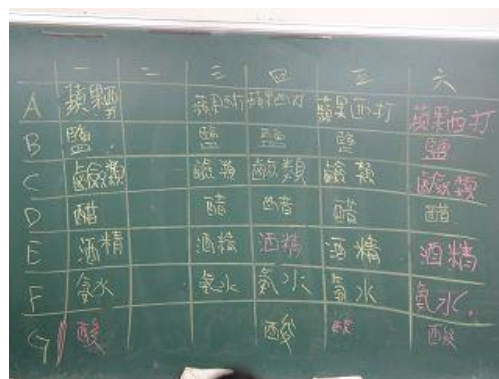 一 二 三 四 五 六
A 蘋果西打 蘋果西打 蘋果西打 蘋果西打 蘋果西打
B 鹽 鹽 鹽 鹽 鹽
C 鹼類 鹼類 鹼類 鹼類 鹼類
D 醋 醋 醋 醋 醋
E 酒精 酒精 酒精 酒精 酒精
F 氨水 氨水 氨水 氨水 氨水
G 酸 酸 酸 酸